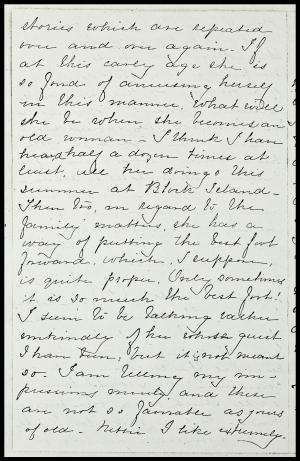 stories which are repeated
over and over again. If
at this early age she is
so fond of amusing herself
in this manner, what will
she be when she becomes an
old woman - I think I have
heard half a dozen times at
least, all her doings this
summer at Block Island -
Then too, in regard to the
family matters, she has a
way of putting the best foot
forward, which, I suppose,
is quite proper. Only sometimes
it is so much the best foot!
I seem to be talking rather
unkindly of her whose guest
I have been, but it is not meant
so. I am telling my im-
pressions merely, and these
are not so favorable as yours
of old - Nettie I like extremely.